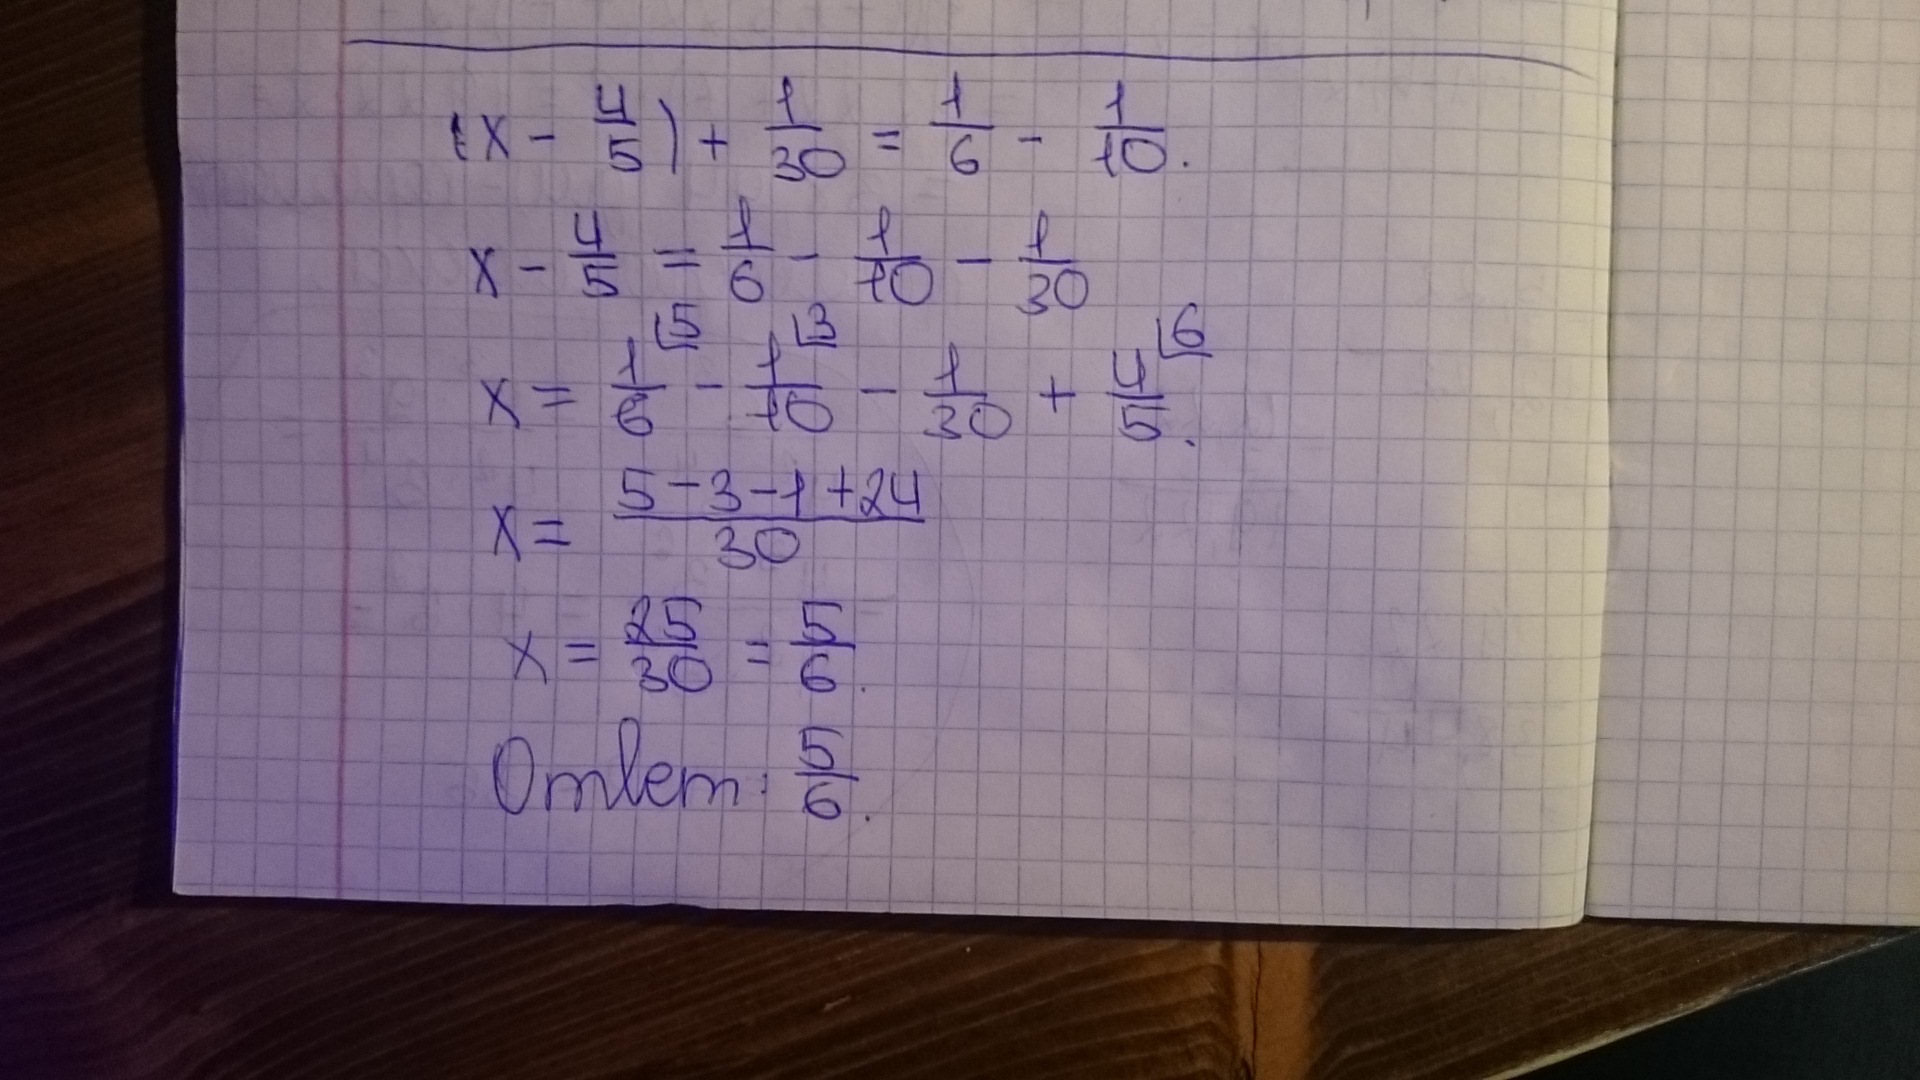 (x - 4/5) + 1/30 = 1/6 - 1/10.
x - 4/5 = 1/6 - 1/10 - 1/30
x = 1/6 ⌊5 - 1/10 ⌊3 - 1/30 + 4/5 ⌊6.
x = (5-3-1+24)/30
x = 25/30 = 5/6.
Ответ: 5/6.